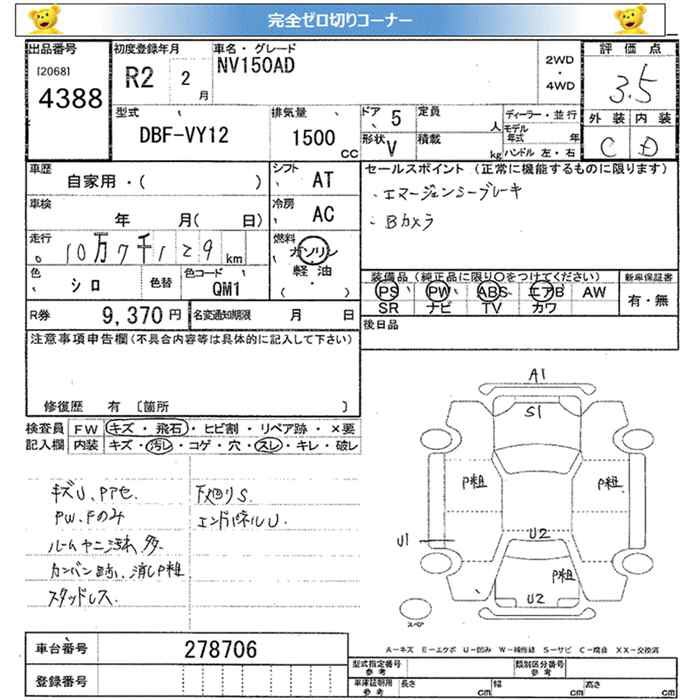 完全ゼロ切りコーナー
出品番号
[2068]
4388
初度登録年月
R2 2 月
車名・グレード
NV150AD
2WD
・
4WD
評価点
3.5
外装 内装
C D
型式
DBF-VY12
排気量
1500 CC
ドア 5
形状 V
定員 人
積載 kg
ディーラー・並行
モデル年式 年
ハンドル 左・右
車歴
自家用・( )
シフト
AT
車検
年 月( 日)
冷房
AC
走行
10万7千129 km
燃料
ガソリン
・
軽油
( )
色
シロ
色替
色コード
QM1
R券
9,370 円
名変通知期限 月 日
セールスポイント (正常に機能するものに限ります)
・エマージェンシーブレーキ
・Bカメラ
装備品 (純正品に限り○をつけてください)
PS PW ABS エアB AW
SR ナビ TV カワ
新車保証書
有・無
後日品
注意事項申告欄(不具合内容等は具体的に記入して下さい)
修復歴 有 〔箇所 〕
検査員
記入欄
FW キズ・飛石・ヒビ割・リペア跡・×要
内装 キズ・汚レ・コゲ・穴・スレ・キレ・破レ
キズU、Pアセ
PW、Fのみ
ルームヤニ汚れ多
カンバン跡、消しP粗
スタッドレス
下廻りS
エンドパネルU
A1
S1
P粗
P粗
U1
U2
P粗
U2
スペア
A-キズ E-エクボ U-凹み W-補修跡 S-サビ C-腐食 XX-交換済
車台番号
278706
登録番号
型式指定番号
参考
類別区分番号
参考
車庫証明用
参考
長さ cm
幅 cm
高さ cm